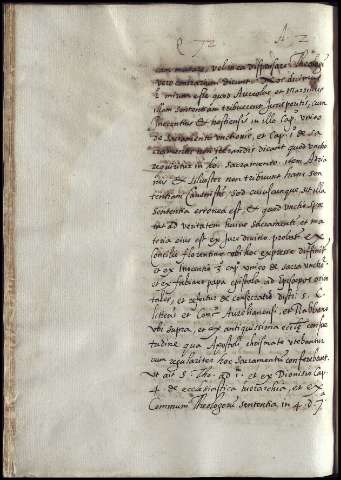 eam mutare, vel in ea dispensare. Theologi
vero contrarium dicunt. Nos dicimus
mirum esse quod Aureolus et
illam sententiam tribuerent Jurisperitis, cum
Innocentius & Hostiensis in illo Cap.º unico
de sacramento unctionis, et Cap. 1 de sa-
cramentis non iterandis dicant quod unctio
requiritur in hoc sacramento. item Adria
nus & Silvester non tribuunt hanc sen
tentiam Canonistis. Sed cuiuscunque sit illa
sententia erronea est, & quod unctio spe
tat ad veritatem huius sacramenti et ma
teria eius est ex Jure divino. probat. ex
Concilio florentino ubi hoc expresse diffinit
et ex Innocentio 3 cap. unico de sacra unctio.
et ex fabiano papa epistola ad episcopos orien
tales, et refertur de consecratio. disti. 5. C.
et Conc. Aurelianensi, et Rabbano
ubi supra, et ex antiquissima consue
tudine qua Apostoli chrismate utebantur
cum regulariter hoc sacramentum conferebant.
ut ait S. Tho. ad 1. et ex Dionisio Cap.
4. de ecclesiastica hierarchia, et ex
Communi Theologorum sententia in 4. d. 7